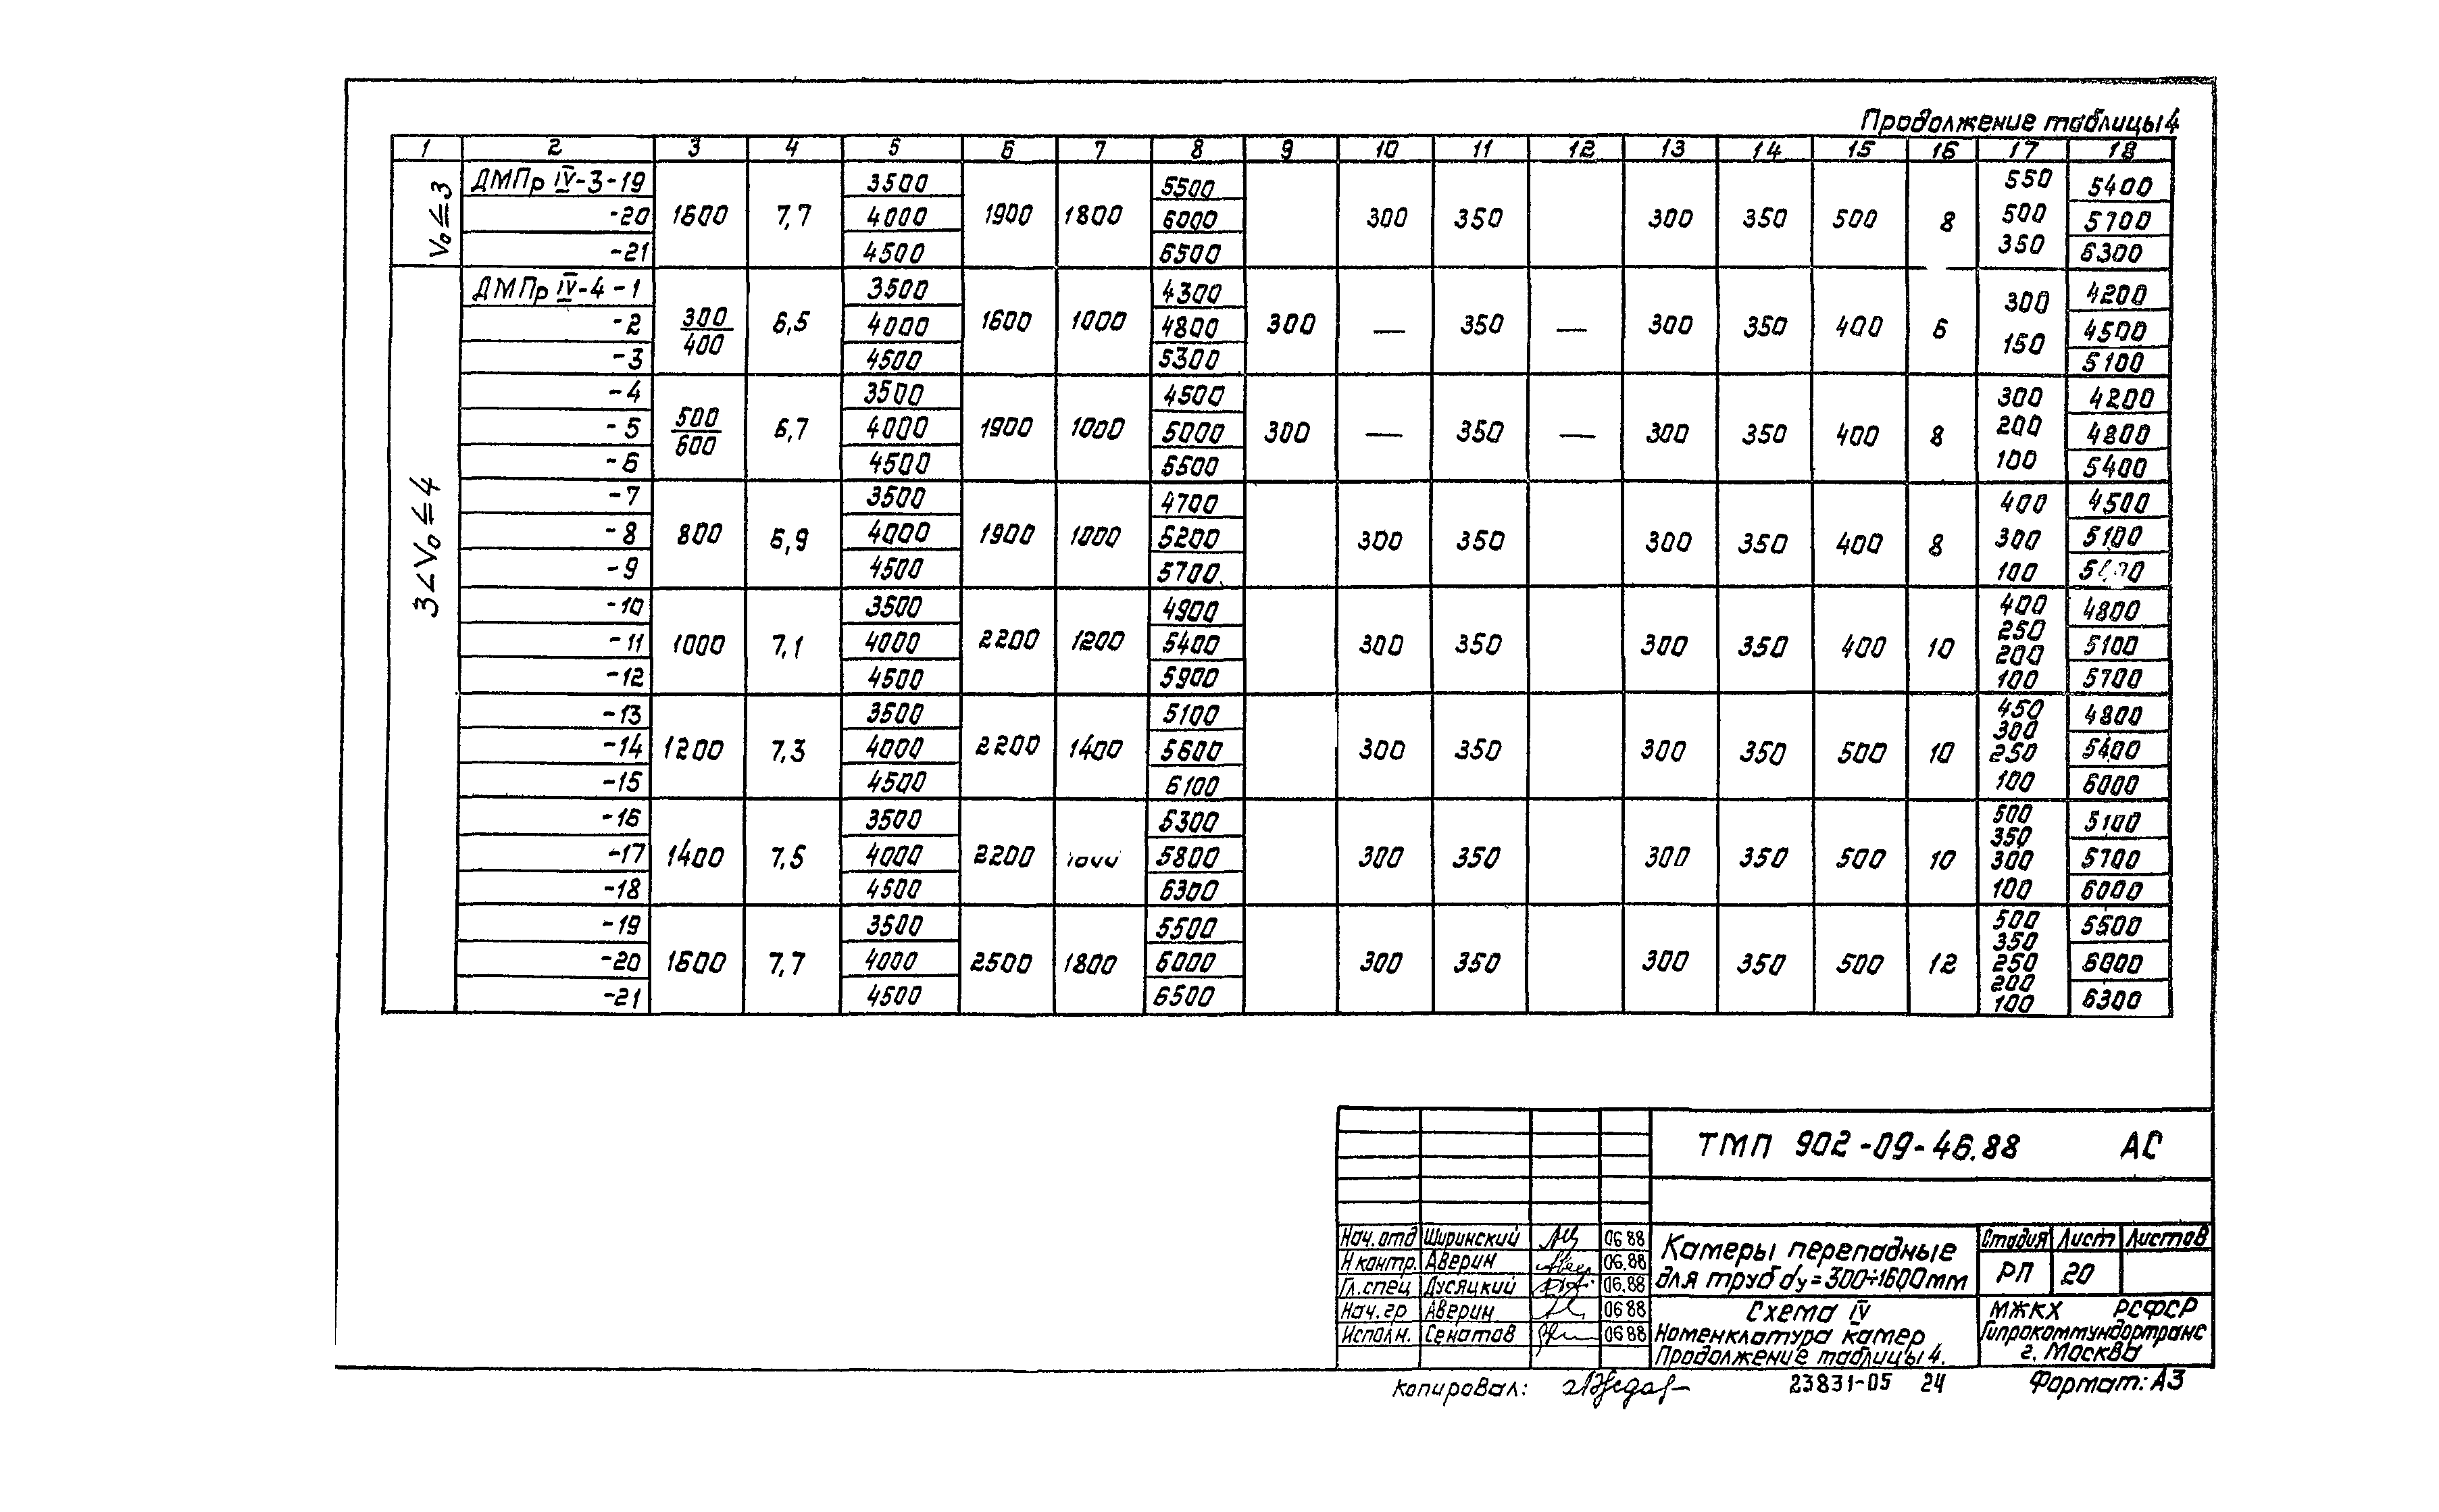 Продолжение таблицы 4
1 2 3 4 5 6 7 8 9 10 11 12 13 14 15 16 17 18
V₀≤3
ДМПр IV-3-19 3500 5500 550 5400
-20 1600 7,7 4000 1900 1800 6000 300 350 300 350 500 8 500 5700
-21 4500 6500 350 6300
3<V₀≤4
ДМПр IV-4-1 3500 4300 300 4200
-2 300/400 6,5 4000 1600 1000 4800 300 — 350 — 300 350 400 6 4500
-3 4500 5300 150 5100
-4 3500 4500 300 4200
-5 500/600 6,7 4000 1900 1000 5000 300 — 350 — 300 350 400 8 200 4800
-6 4500 5500 100 5400
-7 3500 4700 400 4500
-8 800 6,9 4000 1900 1000 5200 300 350 300 350 400 8 300 5100
-9 4500 5700 100
-10 3500 4900 400 4800
-11 1000 7,1 4000 2200 1200 5400 300 350 300 350 400 10 250 200 5100
-12 4500 5900 100 5700
-13 3500 5100 450 4800
-14 1200 7,3 4000 2200 1400 5600 300 350 300 350 500 10 300 250 5400
-15 4500 6100 100 6000
-16 3500 5300 500 5100
-17 1400 7,5 4000 2200 5800 300 350 300 350 500 10 350 300 5700
-18 4500 6300 100 6000
-19 3500 5500 500 5500
-20 1600 7,7 4000 2500 1800 6000 300 350 300 350 500 12 350 250 6000
-21 4500 6500 200 100 6300
ТМП 902-09-46.88 АС
Нач. отд Ширинский 06 88
Н контр. Аверин 06.88
Гл. спец Дусяцкий 06.88
Нач. гр Аверин 06 88
Исполн. Сенатов 06 88
Камеры перепадные
для труб dy=300÷1600мм
Стадия Лист Листов
РП 20
Схема IV
Номенклатура камер
Продолжение таблицы 4.
МЖКХ РСФСР
Гипрокоммундортранс
г. Москва
Копировал: 23831-05 24 Формат: А3